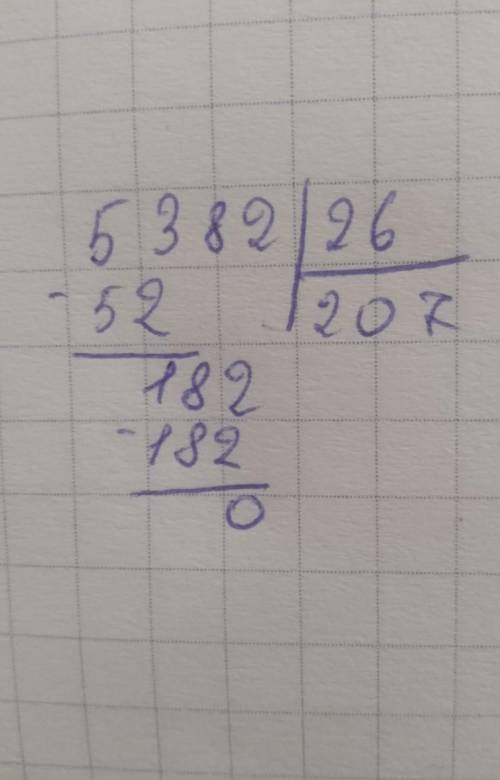 5382 | 26
-52 | 207
182
-182
0